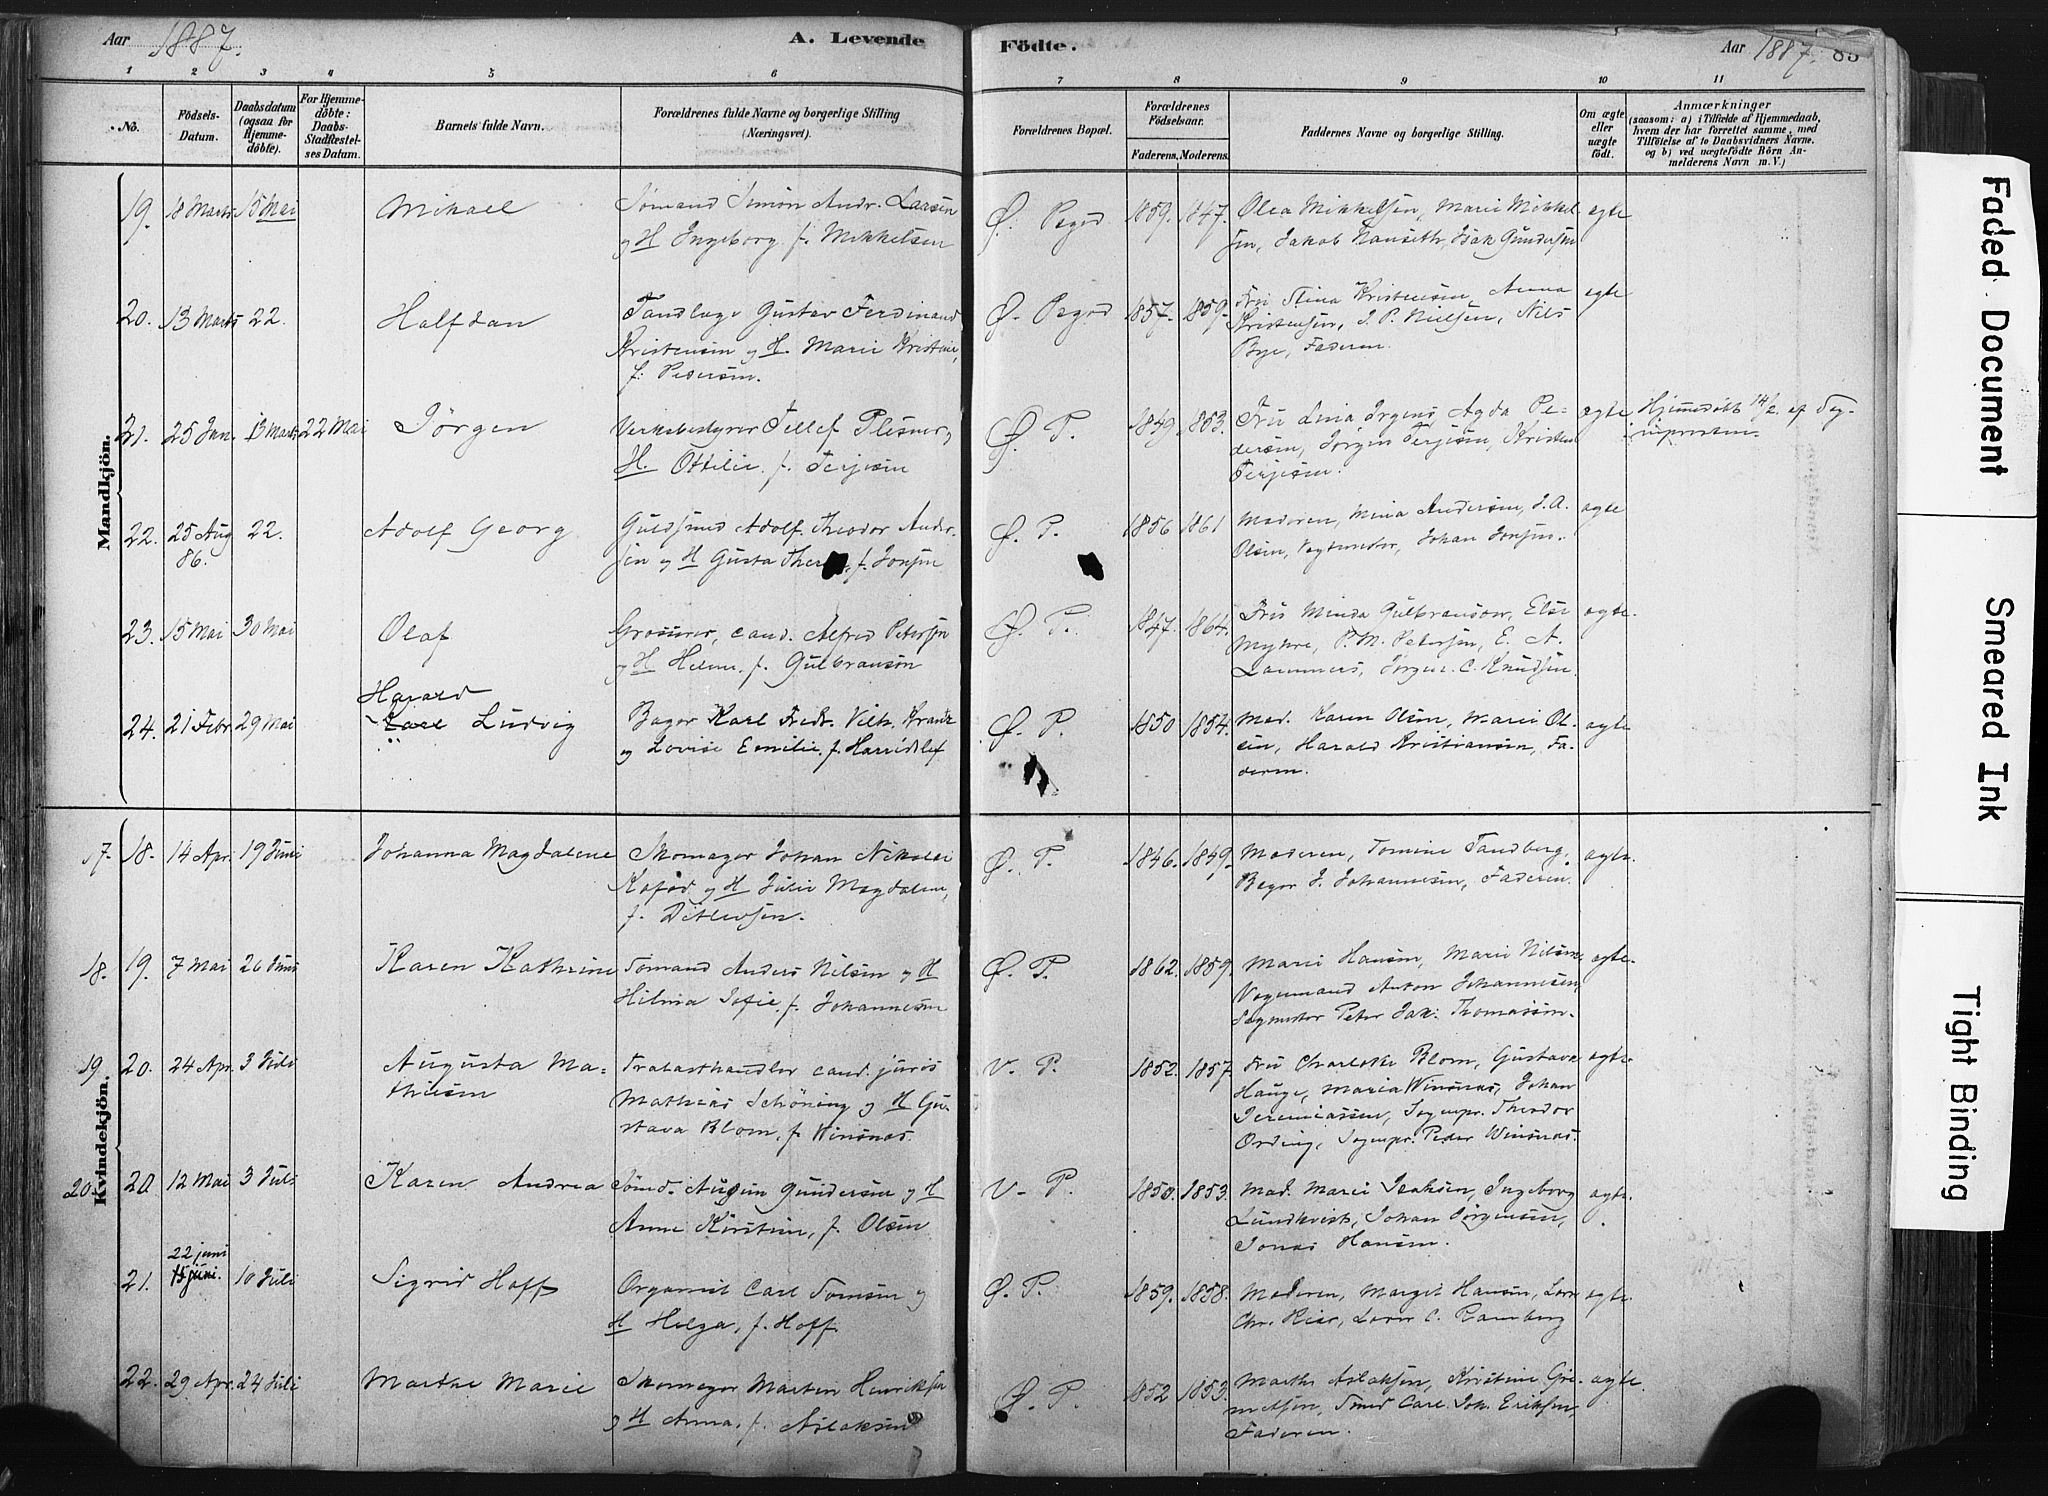 Aar 1887. A. Levende Födte. Aar 1887. 85
1 2 3 4 5 6 7 8 9 10 11
No.
Födsels-
Datum.
Daabsdatum
(ogsaa for
Hjemme-
döbte).
For Hjemme-
döbte:
Daabs-
Stadfæstel-
ses Datum.
Barnets fulde Navn.
Forældrenes fulde Navne og borgerlige Stilling
(Næringsvei).
Forældrenes Bopæl.
Forældrenes
Födselsaar.
Faderens. Moderens.
Faddernes Navne og borgerlige Stilling.
Om ægte
eller
uægte
födt.
Anmærkninger
(saasom: a) i Tilfælde af Hjemmedaab,
hvem der har forrettet samme, med
Tilföielse af to Daabsvidners Navne.
og b) ved uægtefödte Börn An-
melderens Navn m. V.)
Mandkjön.
19. 18 Marts 15 Mai Mikael
Sømand Simon Andr. Larsen
og H Ingeborg f. Mikkelsen
Ø. 1859. 1847.
Olea Mikkelsen, Marie Mikkel-
sen, Jakob Hanseth, Isak Gundersen
ægte
20. 13 Marts 22. Halfdan
Tandlæge Gustav Ferdinand
Kristensen og H. Marie Kristine,
f. Pedersen.
Ø. 1857. 1859.
Fru Stina Kristensen, Anna
Kristensen, J. P. Nielsen, Nils
Bye, Faderen.
ægte
21. 25 Jan. 13 Marts 22 Mai Jörgen
Verksbestyrer Tellef Plesner,
H. Ottilie f. Terjesen
Ø. P. 1849. 1853.
Fru Lina Irgens, Agda Pe-
dersen, Jörgen Terjesen, Kristen
Terjesen.
ægte
Hjemmedöbt 14/2. af Sog-
nepresten.
22. 25 Aug 86. 22. Adolf Georg
Guldsmed Adolf Theodor Ander-
sen og H Gusta f. Jonsen
Ø. P. 1856 1861
Moderen, Mina Andersen, J. A.
Olsen, Johan Jonsen.
ægte
23. 15 Mai 30 Mai Olaf
Grosserer, cand. Alfred Petersen
og H f. Gulbransön
Ø. P. 1847. 1864.
Fru Minda Gulbranson, Else
Myhre, P. M. Petersen, E. A.
Lammers, Jörgen C. Knudsen.
ægte.
24. 21 Febr. 29 Mai
Harald
Karl Ludvig
Bager Karl Fredr. Vilh. Krantz
og Lovise Emilie f. Harridslef
Ø. P. 1850 1854.
Mad. Karen Olsen, Marie Ol-
sen, Harald Kristiansen, Fa-
deren.
ægte
Kvindekjön.
17. 18. 14 Apr. 19 Juni Johanna Magdalene
Skomager Johan Nikolai
Kofod og H Julie Magdalene,
f. Ditlevsen.
Ø. P. 1846. 1849.
Moderen, Tomine Tandberg,
Bager J. Johannesen, Faderen.
ægte.
18. 19. 7 Mai 26 Juni Karen Kathrine
Sømand Anders Nilsen og H
Hilma Sofie f. Johannesen
Ø. P. 1862. 1859.
Marie Hansen, Marie Nilsen,
Vognmand Anton Johannesen,
Peter Jak. Thomassen.
ægte.
19. 20. 24 Apr. 3 Juli
Augusta Ma-
thiesen
Trælasthandler cand. juris
Mathias Schöning og H Gu-
stava Blom, f. Winsnes.
V. P. 1852. 1857.
Fru Charlotte Blom, Gustava
Hauge, Maria Winsnes, Johan
Jeremiassen, Sognepr. Theodor
Ording, Sognepr. Peder Winsnes.
ægte.
20. 20 12 Mai 3 Juli Karen Andrea
Sömd. August Gundersen og H
Anne Kirstine, f. Olsen
V. P. 1850. 1853.
Mad. Marie Isaksen, Ingeborg
Lundkvist, Johan Jörgensen,
Jonas Hansen.
ægte.
22 juni
21. 15 juni. 10 Juli Sigrid Hoff
Organist Carl Tomsen og
H Helga, f. Hoff.
Ø. P. 1859. 1858.
Moderen, Marget Hansen,
Chr. Kiær, C. Ramberg
ægte.
22. 29 Apr. 24 Juli Marthe Marie
Skomager Morten Henriksen
og H Anna, f. Aslaksen
Ø. P. 1852 1853.
Marthe Aslaksen, Kristine Gri-
Sömd Carl Joh. Eriksen,
Faderen.
ægte.
Faded Document
Smeared Ink
Tight Binding